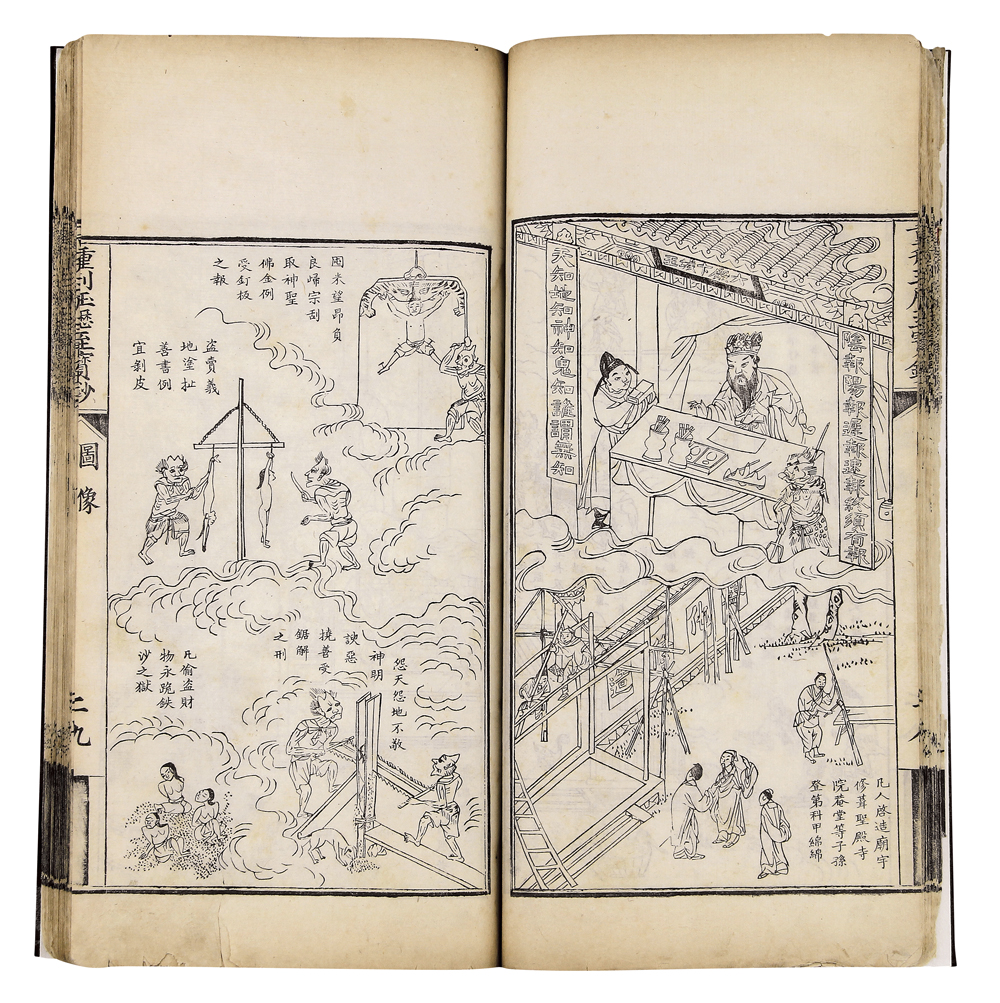 陰報陽報遲報速報終須有報
天知地知神知鬼知誰謂無知
凡人啓造廟宇
修葺聖殿寺
院菴堂等子孫
登第科甲綿綿
囤米望昂負
良歸宗刮
取神聖
佛金例
受釘板
之報
盜賣義
地塗扯
善書例
宜剝皮
怨天怨地不敬
神明
諛惡
撓善受
鋸解
之刑
凡偷盜財
物永跪鉄
沙之獄
重刊玉歷至寶鈔
圖像
二九